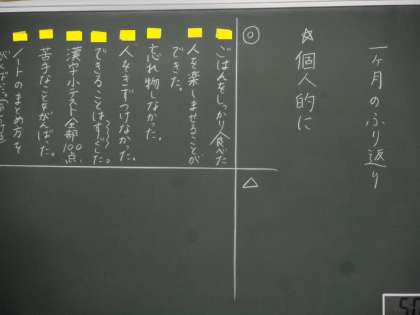 一ヶ月のふり返り
☆個人的に
◎
ごはんをしっかり食べた
人を楽しませることが
できた。
忘れ物しなかった。
人をきずつけなかった。
できることはすぐした。
漢字小テスト全部100点
苦手なことをがんばった。
ノートのまとめ方を
△